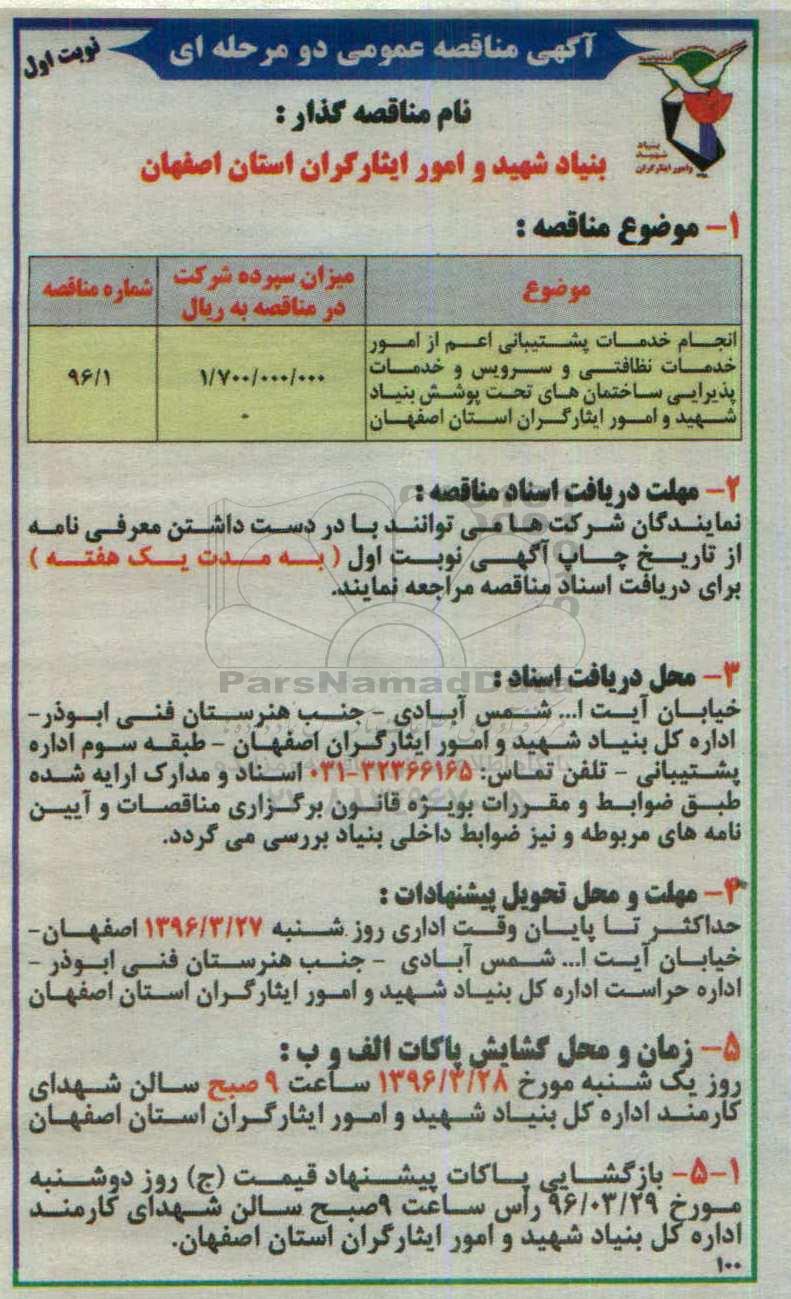 آگهی مناقصه عمومی دو مرحله ای
نوبت اول
بنیاد
شهید
وامور ایثارگران
نام مناقصه گذار :
بنیاد شهید و امور ایثارگران استان اصفهان
۱- موضوع مناقصه :
موضوع
میزان سپرده شرکت
در مناقصه به ریال
شماره مناقصه
انجام خدمات پشتیبانی اعم از امور
خدمات نظافتی و سرویس و خدمات
پذیرایی ساختمان های تحت پوشش بنیاد
شهید و امور ایثارگران استان اصفهان
۱/۷۰۰/۰۰۰/۰۰۰
-
۹۶/۱
۲- مهلت دریافت اسناد مناقصه :
نمایندگان شرکت ها می توانند با در دست داشتن معرفی نامه
از تاریخ چاپ آگهی نوبت اول ( به مدت یک هفته )
برای دریافت اسناد مناقصه مراجعه نمایند.
۳- محل دریافت اسناد :
ParsNamadData
خیابان آیت ا... شمس آبادی - جنب هنرستان فنی ابوذر-
اداره کل بنیاد شهید و امور ایثارگران اصفهان - طبقه سوم اداره
پشتیبانی - تلفن تماس: ۳۲۳۶۶۱۶۵-۰۳۱ اسناد و مدارک ارایه شده
طبق ضوابط و مقررات بویژه قانون برگزاری مناقصات و آیین
نامه های مربوطه و نیز ضوابط داخلی بنیاد بررسی می گردد.
۴- مهلت و محل تحویل پیشنهادات :
حداکثر تا پایان وقت اداری روز شنبه ۱۳۹۶/۳/۲۷ اصفهان-
خیابان آیت ا... شمس آبادی - جنب هنرستان فنی ابوذر -
اداره حراست اداره کل بنیاد شهید و امور ایثارگران استان اصفهان
۵- زمان و محل گشایش پاکات الف و ب :
روز یک شنبه مورخ ۱۳۹۶/۳/۲۸ ساعت ۹ صبح سالن شهدای
کارمند اداره کل بنیاد شهید و امور ایثارگران استان اصفهان
۵-۱- بازگشایی پاکات پیشنهاد قیمت (ج) روز دوشنبه
مورخ ۹۶/۰۳/۲۹ راس ساعت ۹صبح سالن شهدای کارمند
اداره کل بنیاد شهید و امور ایثارگران استان اصفهان.
۱۰۰